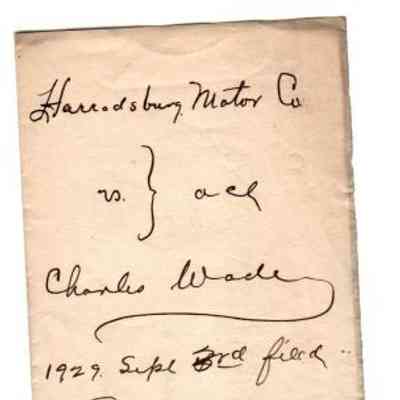 Harrodsburg Motor Co
vs. } acct
Charles Wade
1929. Sept 3rd filed